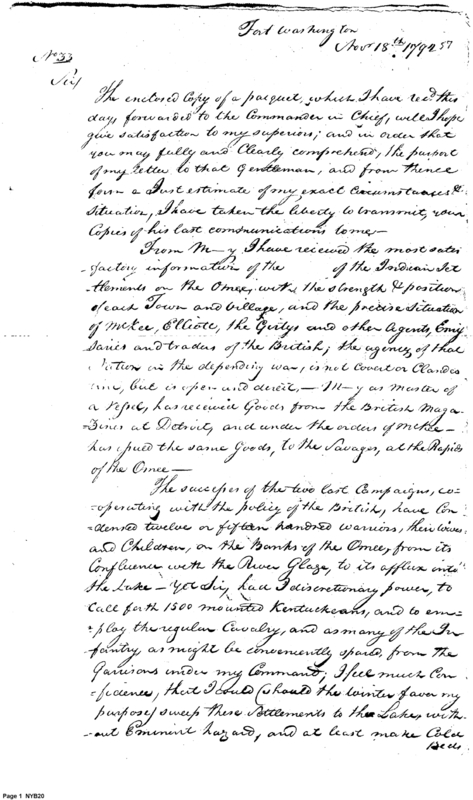 Fort Washington
Novr 18th 1792 57
No 33
Sir
The enclosed Copy of a pacquet, which I have recd. this
day, forwarded to the Commander in Chief, will I hope
give satisfaction to my superiors; and in order that
you may fully and Clearly comprehend, the purport
of my letter to that Gentleman, and from thence
form a Just estimate of my exact Circumstances &
Situation, I have taken the liberty to transmit, your
Copies of his last communications to me—
From M—y, I have received the most satis
-factory information of the of the Indian Set
-tlements on the Omee, with the strength & position
of each Town and Village, and the precise Situation
of McKee, Elliott, the Girtys and other Agents, Emis
saries and traders of the British; the agency of that
Nation in the depending war, is not Covert or Clandes
tine, but is open and direct,— M—y as Master of
a Vessel, has received Goods from the British Maga
-zines at Detroit, and under the orders of McKee—
has issued the same Goods, to the Savages, at the Rapids
of the Omee—
The successes of the two last Campaigns, co-
-operating with the policy of the British, have Con
-densed twelve or fifteen hundred warriors, their wives
and Children, on the Banks of the Omee, from its
Confluence with the River Glaze, to its afflux into
the Lake— Yet Sir, had I discretionary power, to
Call forth 1500 mounted Kentuckeans, and to em-
-ploy the regular Cavalry, and as many of the In-
-fantry as might be conveniently spared, from the
Garrisons under my Command; I feel much Con
-fidence, that I could (should the winter favor my
purpose) sweep these Settlements to the Lake, with-
-out Eminent hazard, and at least make Cold
Beds
Page 1 NYB20